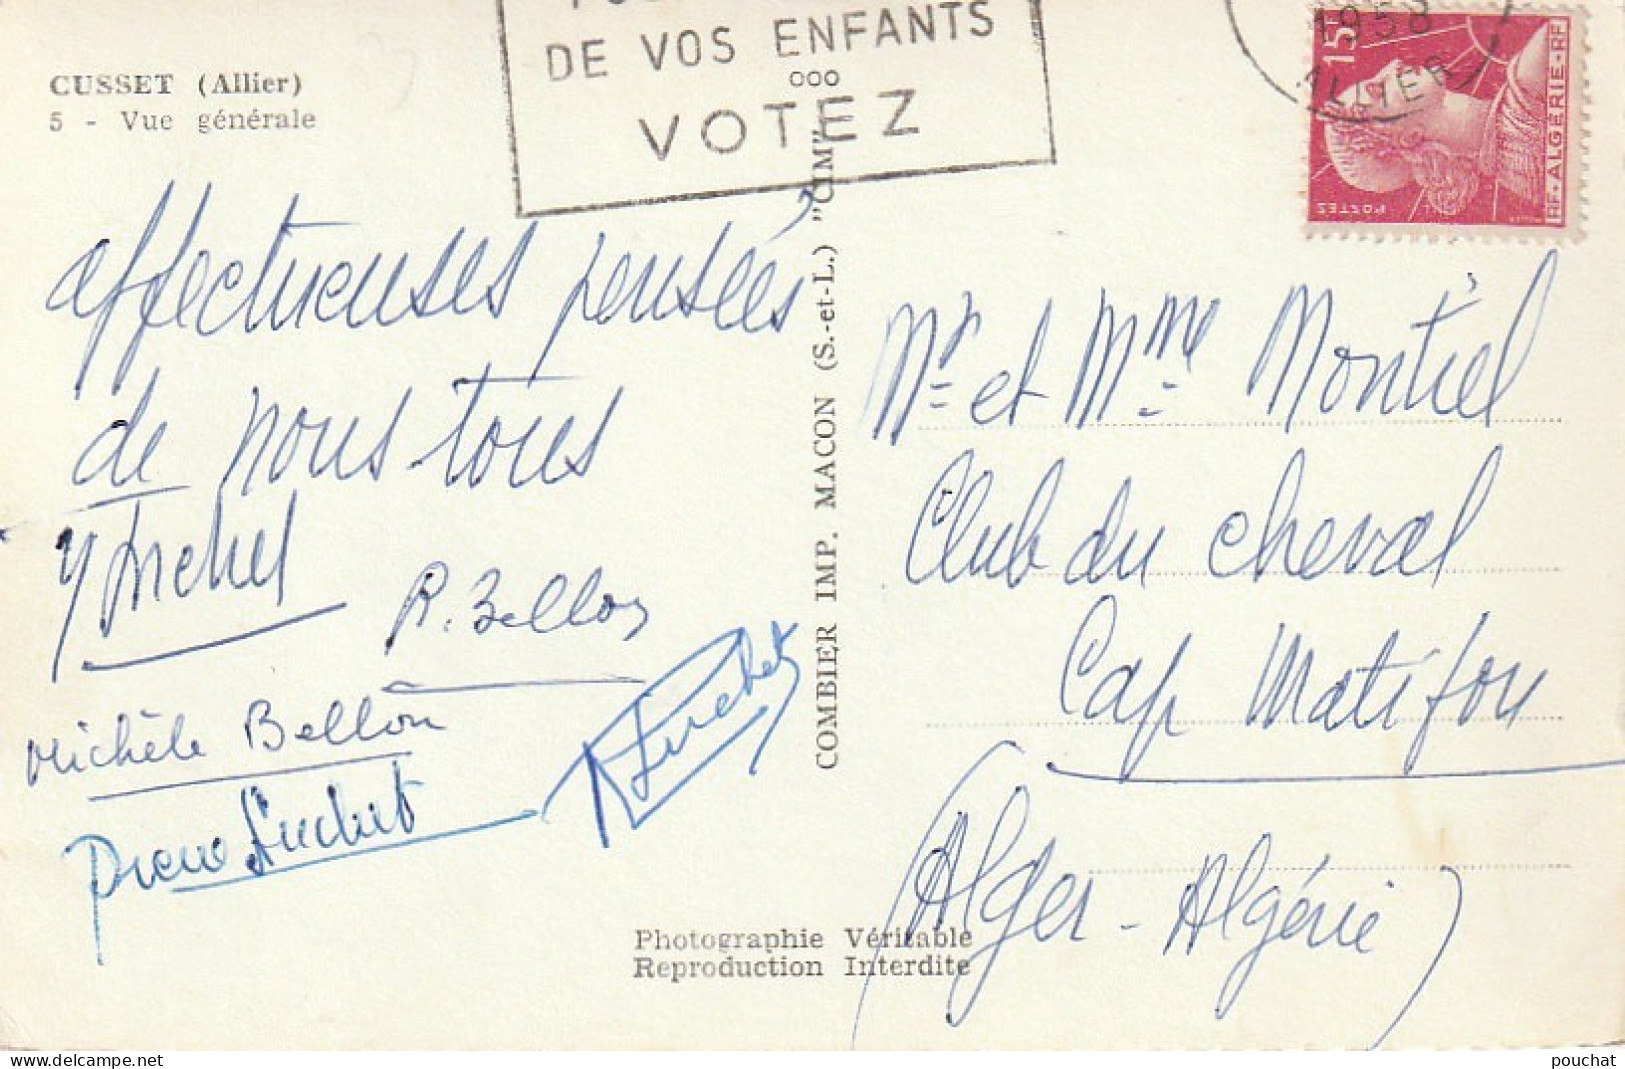 CUSSET (Allier)
5 - Vue générale
DE VOS ENFANTS
ooo
VOTEZ
1958
ALLIER
15F
RF-ALGÉRIE-RF
POSTES
affectueuses pensées
de nous tous
R. Bellon
Michèle Bellon
Pierre
COMBIER IMP. MACON (S.-et-L.) "CIM"
Mr et Mme Montiel
Club du cheval
Cap Matifou
(Alger - Algérie)
Photographie Véritable
Reproduction Interdite
pouchat